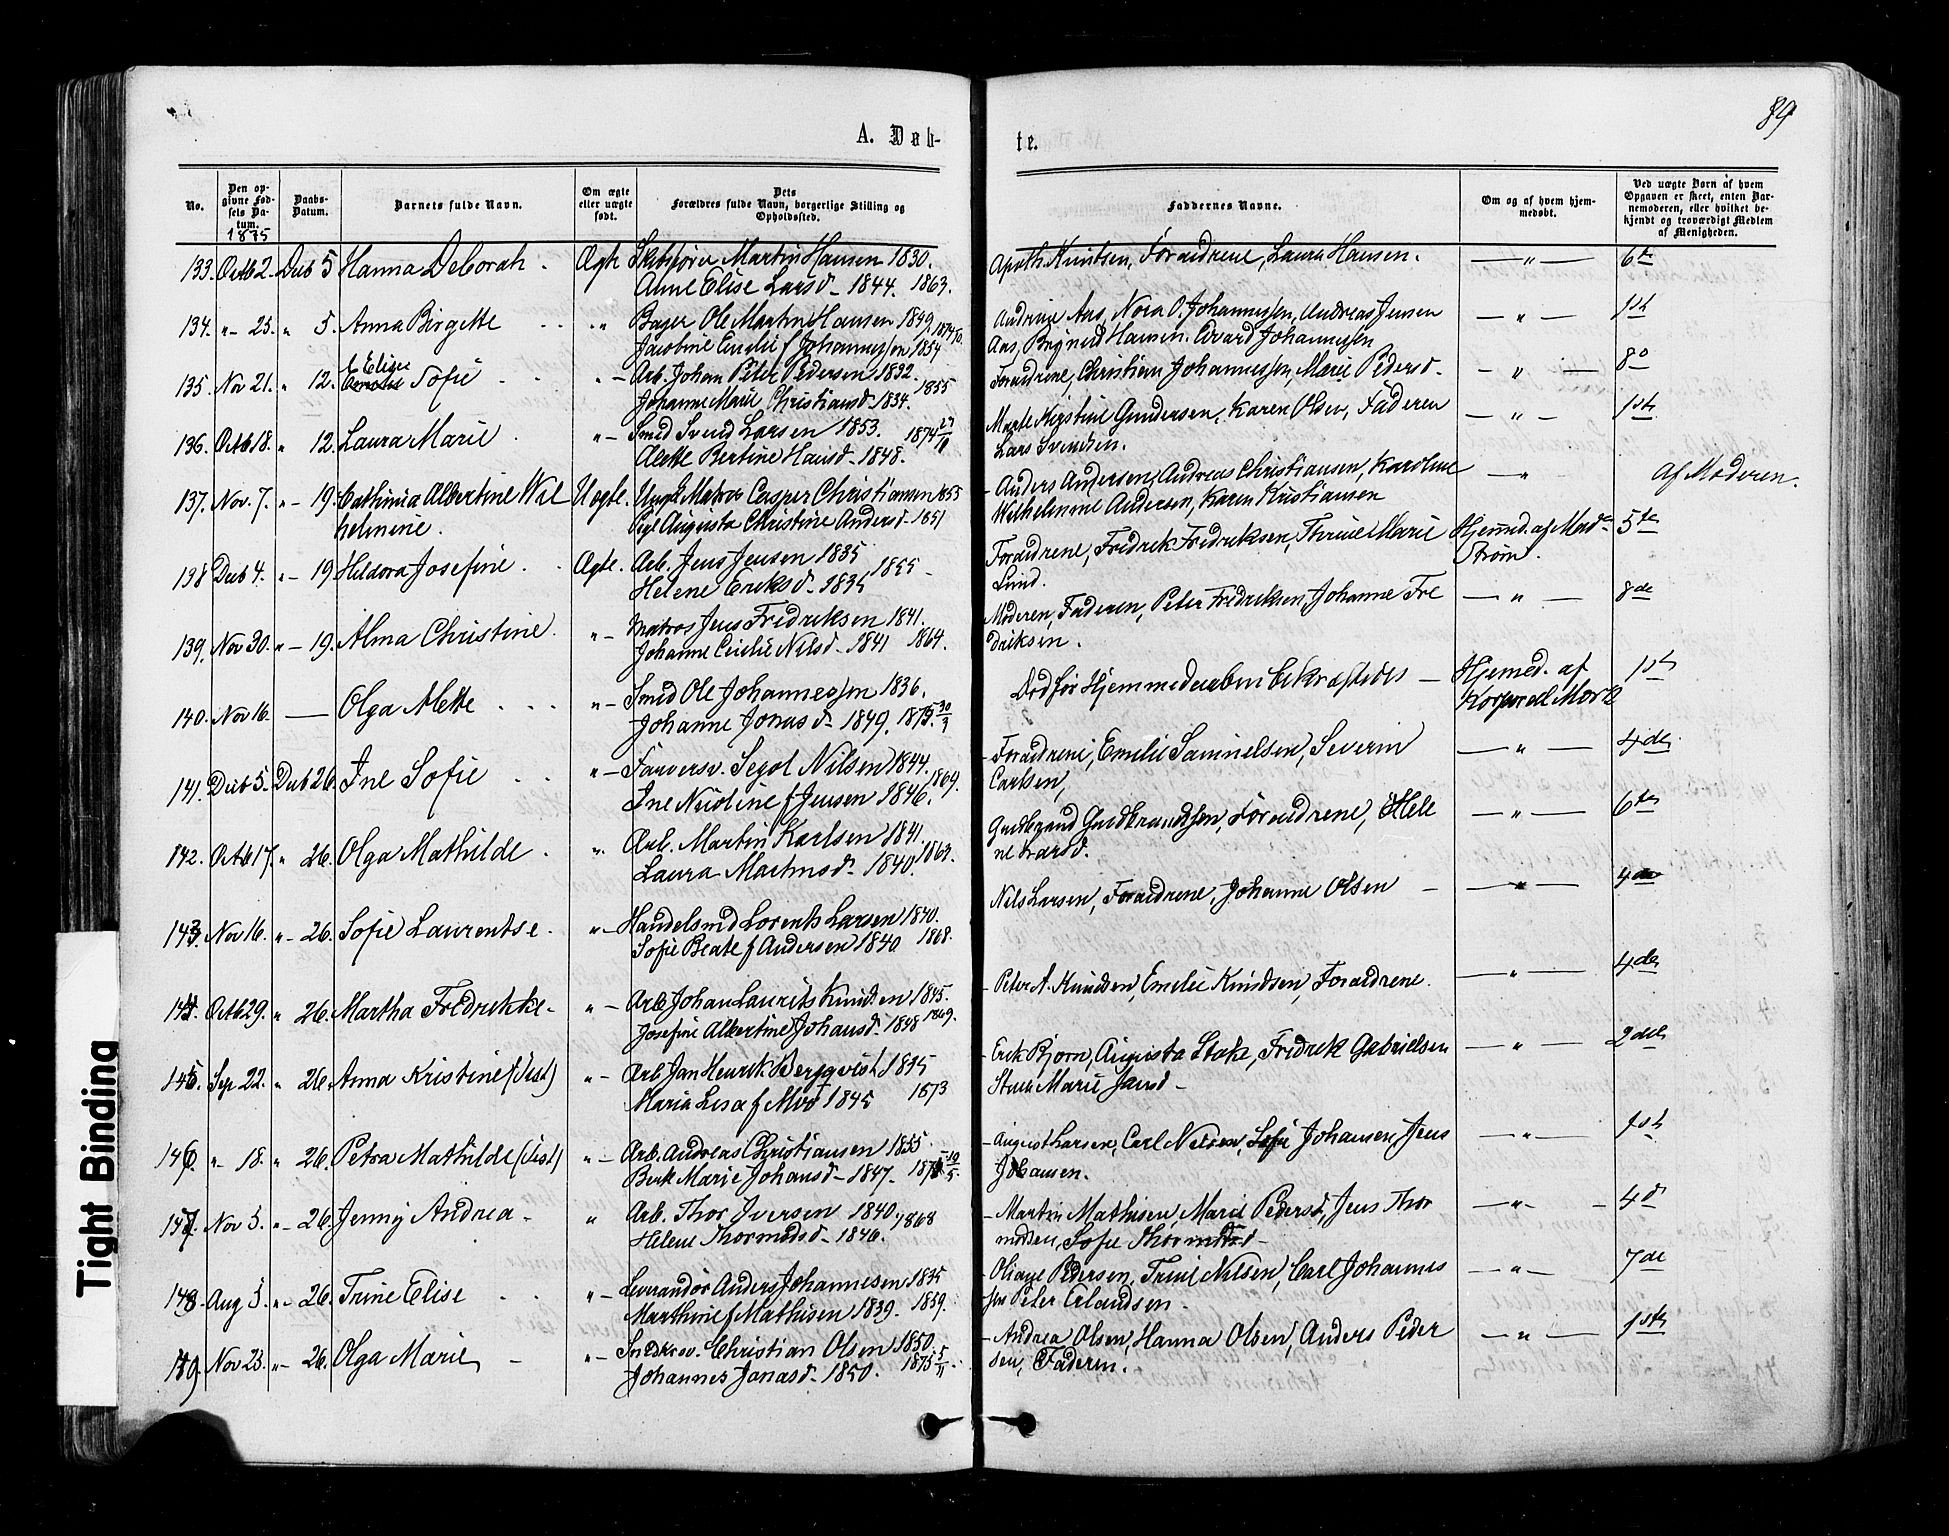 89
A. Døb-
te.
No.
Den op-
givne Fød-
sels Da-
tum.
1875
Daabs-
Datum.
Barnets fulde Navn.
Om ægte
eller uægte
født.
Dets
Forældres fulde Navn, borgerlige Stilling og
Opholdssted.
Faddernes Navne.
Om og af hvem hjem-
medøbt.
Ved uægte Børn af hvem
Opgaven er skeet, enten Bar-
nemoderen, eller hvilket be-
kjendt og troværdigt Medlem
af Menigheden.
133. Octb 2. Decb 5 Hanna Deborah. Ægte Skibsfører Martin Hansen 1830.
Anne Elise Larsd. 1844. 1863.
Apoth. Knutsen, Foraldrene, Laura Hansen. — " — 6te
134. " - 25. " 5. Anna Birgette " Bager Ole Martin Hansen 1849
Jacobine Emilie f Johannessen 1854
Andrine Aas, Nora O. Johannessen, Andreas Jensen — " — 1st
Aas, Hansen. Edvard Johannessen
135. Nov 21. " 12. Elise Sofie " - Arb. Johan Peter Pedersen 1832. 1855
Johanne Marie Christiansd. 1834.
Foraldrene, Christian Johannessen, Marie Pedersd. — " — 8º
136. Octb 18. " 12. Laura Marie. " - Smed Svend Larsen 1853. 1874
Alette Bertine Hansd. 1848.
Marte Kirstine Gundersen, Karen Olsen, Faderen — " — 1ste
Lars Svendsen.
137. Nov. 7. " - 19. Cathinia Albertine Wil
helmine. Uægte. Ungk Matros Casper Christiansen 1853
Pige Augusta Christine Andersd. 1851
Anders Andersen, Andreas Christiansen, Karoline — " af Moderen.
Wilhelmine Andersen, Karen Kristiansen
138 Decb 4. " - 19 Heldora Josefine. Ægte. Arb. Jens Jensen 1835 1855 -
Helene Eriksd. 1835
Foraldrene, Fredrik Fredriksen, Therine Marie Hjemmd. af Mad. 5te
Lund. Strøm.
139. Nov 30. " - 19. Alma Christine. " - Matros Jens Fredriksen 1841.
Johanne Cecilie Nilsd. 1841 1864.
Moderen, Faderen, Peter Fredriksen, Johanne Fre — " — 8de
driksen.
140. Nov 16. — Olga Alette " - Smed Ole Johannessen 1836.
Johanne Jonasd. 1849. 1875 30/3
Død før Hjemmedaaben bekræftedes — Hjemed. af 1st
Korporal Mork
141. Decb 5. Decb 26. Ine Sofie " - Farversv. Segol Nilsen 1844. 1869.
Ine Nicoline f Jensen 1846.
Foraldrene, Emilie Samuelsen, Severin — " — 4de
Carlsen,
142. Octb 17. " 26. Olga Mathilde. " Arb. Martin Karlsen 1841.
Laura Martinsd. 1840. 1863.
Gudbrand Gudbrandsen, Foraldrene, Hele — " — 6te
ne Ivarsd.
143. Nov 16. " - 26. Sofie Laurentse. " - Handelsmd Lorents Larsen 1840.
Sofie Beate f Andersen 1840 1868.
Nils Larsen, Foraldrene, Johanne Olsen — " — 4de
144. Octb 29. " 26. Martha Fredrikke. " - Arb Johan Laurits Knudsen 1845.
Josefine Albertine Johansd. 1848 1869.
Peter A. Knudsen, Emelie Knudsen, Foraldrene. — " — 4de
145. Sep 22. " 26. Anna Kristine (Diss) " - Arb Jan Henrik Bergqvist 1835
Maria Lisa f Moo 1845 1873
Erik Bjorn, Augusta Stake, Fredrik Gabrielsen — " — 2det
Marie Jansd.
146. " - 18. " 26. Petra Mathilde (Diss) " - Arb. Andreas Christiansen 1855.
Berte Marie Johansd. 1847.
August Larsen, Carl Nilsen, Sofie Johansen, Jens — " — 1st
Johansen.
147. Nov 5. " - 26. Jenny Andrea. " Arb. Thor Iversen 1840. 1868
Helene Thormodsd. 1846.
Martin Mathisen, Marie Pedersd, Jens Thor — " — 4d
modsen, Sofie Thormodsd.
148. Aug 5. " - 26. Trine Elise " - Leverandør Anders Johannesen 1835
Marthine f Mathisen 1839. 1859.
Oliane Pedersen, Trine Nilsen, Carl Johannes — " — 7de
sen Peter Erlandsen.
149. Nov 23. " - 26. Olga Marie " - Snedkersv. Christian Olsen 1850.
Johannes Jonasd. 1850. 1875 5/11
Andrea Olsen, Hanna Olsen, Anders Peder — " — 1ste
sen, Faderen.
Tight Binding